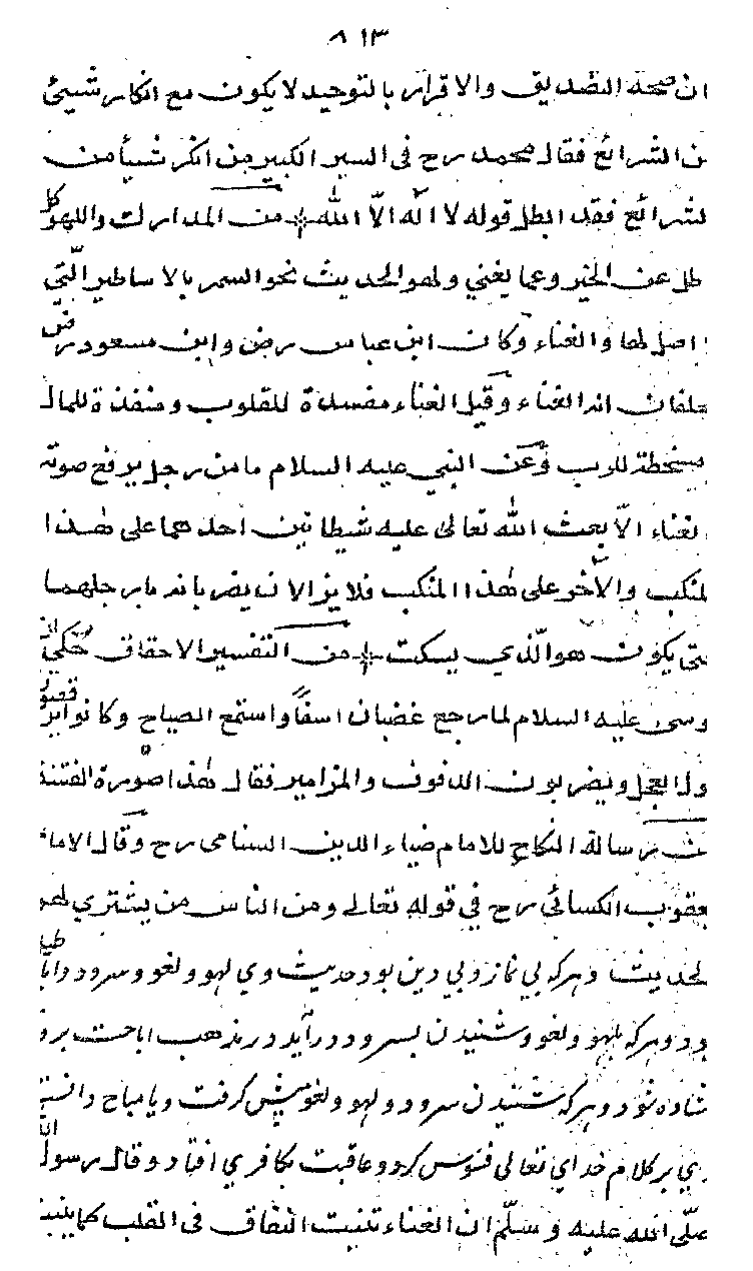 ٨١٣
ان صحة التصديق والاقرار بالتوحيد لا يكون مع انكار شيئ
من الشرائع فقال محمد رح فى السير الكبير من انكر شيأ من
لشرائع فقد ابطل قوله لا اله الّا الله من المدارك واللهو كل
طل عن الخير وعما يغني ولهو الحديث نحو السمر بالاساطير الّتي
اصل لها والغناء وكان ابن عباس رض وابن مسعود رض
حلفان انه الغناء وقيل الغناء مفسدة للقلوب ومنفذة للمال
مسخطة للرب وعن النبي عليه السلام ما من رجل يرفع صوته
لغناء الّا بعث الله تعالى عليه شيطانين احدهما على هذا
لمنكب والآخر على هذا المنكب فلا يزالان يضربانه بارجلهما
حتى يكون هو الّذي يسكت من التفسير الاحقاق حكي ان
وسى عليه السلام لما رجع غضبان اسفاً واستمع الصياح وكانوا
ول العجل ويضربون الدفوف والمزامير فقال هذا صورة الفتنة
من رسالة النكاح للامام ضياء الدين السنامى رح وقال الاما
يعقوب الكسائى رح في قوله تعالى ومن الناس من يشتري لهو
لحديث وهركه بي نماز وبي دين بود حديث وي لهو ولغو وسرود
بود وهركه بلهو ولغو وشنيدن بسرود در آيد در مذهب اباحت برو
شاده شود وهركه شنيدن سرود ولهو ولغو پيش گرفت ويا مباح دانست
بر كلام خداي تعالى فسوس كرد وعاقبت بكافري افتاد وقال رسول الله
صلّى الله عليه وسلّم ان الغناء تنبت النفاق فى القلب كما ينبت